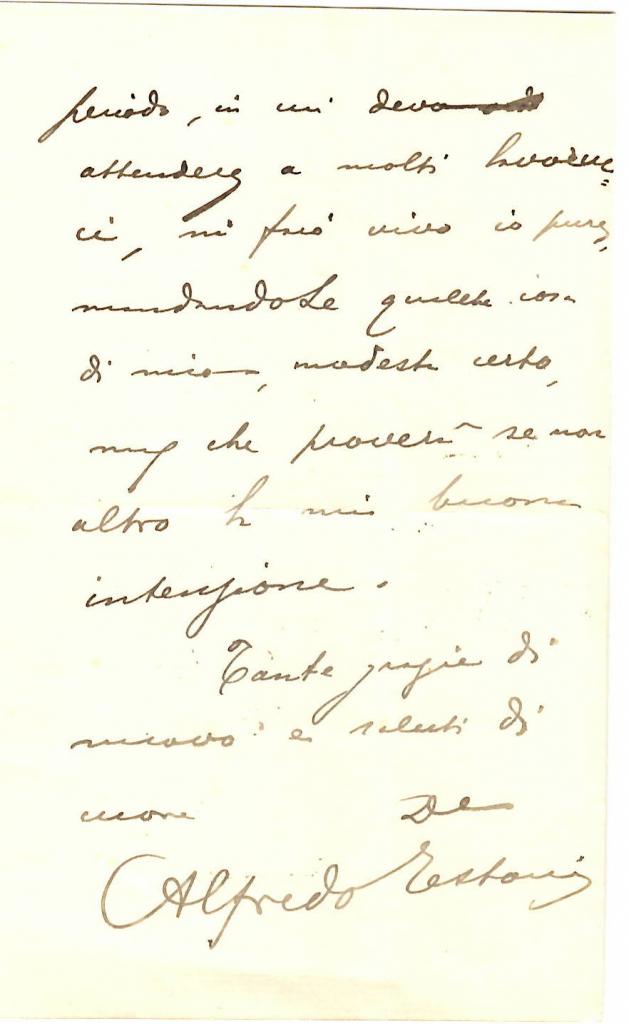 periodo, in cui devo
attendere a molti lavoruc=
ci, mi farò vivo io pure,
mandandoLe qualche cosa
di mio, modesta certo,
ma che proverà se non
altro la mia buona
intenzione.
Tante grazie di
nuovo e saluti di
cuore Da
Alfredo Testoni